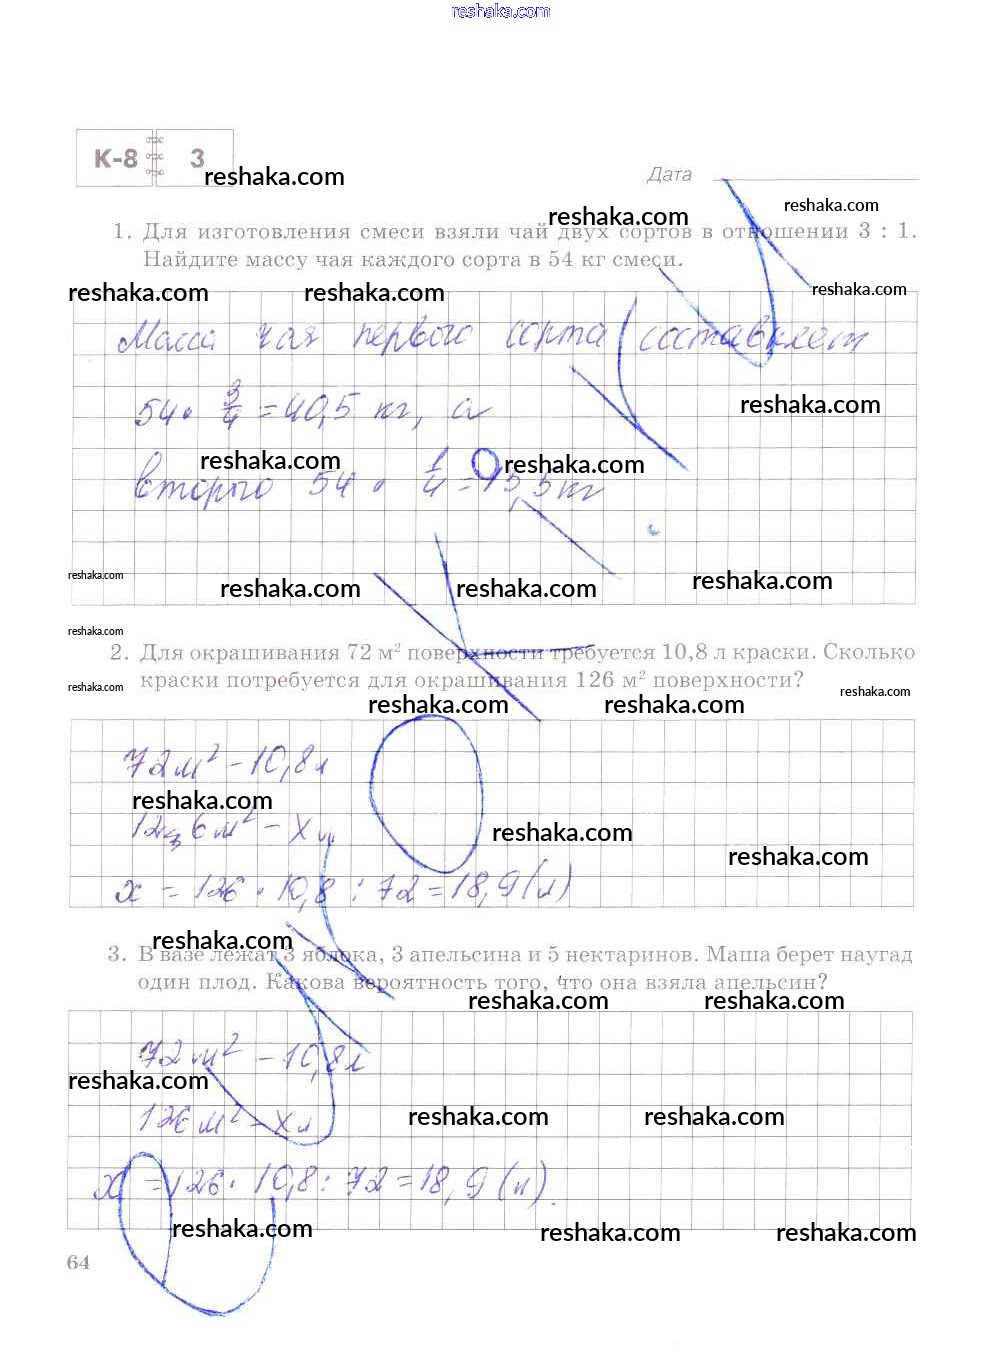 reshaka.com
К-8 3
reshaka.com
Дата
reshaka.com
reshaka.com
1. Для изготовления смеси взяли чай двух сортов в отношении 3 : 1.
Найдите массу чая каждого сорта в 54 кг смеси.
reshaka.com reshaka.com reshaka.com
Масса чая первого сорта составляет
54 · 3/4 = 40,5 кг, а
reshaka.com
reshaka.com reshaka.com
второго 54 · 1/4 = 13,5 кг
reshaka.com reshaka.com reshaka.com reshaka.com
reshaka.com
2. Для окрашивания 72 м² поверхности требуется 10,8 л краски. Сколько
краски потребуется для окрашивания 126 м² поверхности?
reshaka.com reshaka.com
reshaka.com reshaka.com
72 м² – 10,8 л
reshaka.com
126 м² – х л
reshaka.com
reshaka.com
х = 126 · 10,8 : 72 = 18,9 (л)
reshaka.com
3. В вазе лежат 3 яблока, 3 апельсина и 5 нектаринов. Маша берет наугад
один плод. Какова вероятность того, что она взяла апельсин?
reshaka.com reshaka.com
72 м² – 10,8 л
reshaka.com
126 м² – х л
reshaka.com reshaka.com
х = 126 · 10,8 : 72 = 18,9 (л).
reshaka.com reshaka.com reshaka.com
64